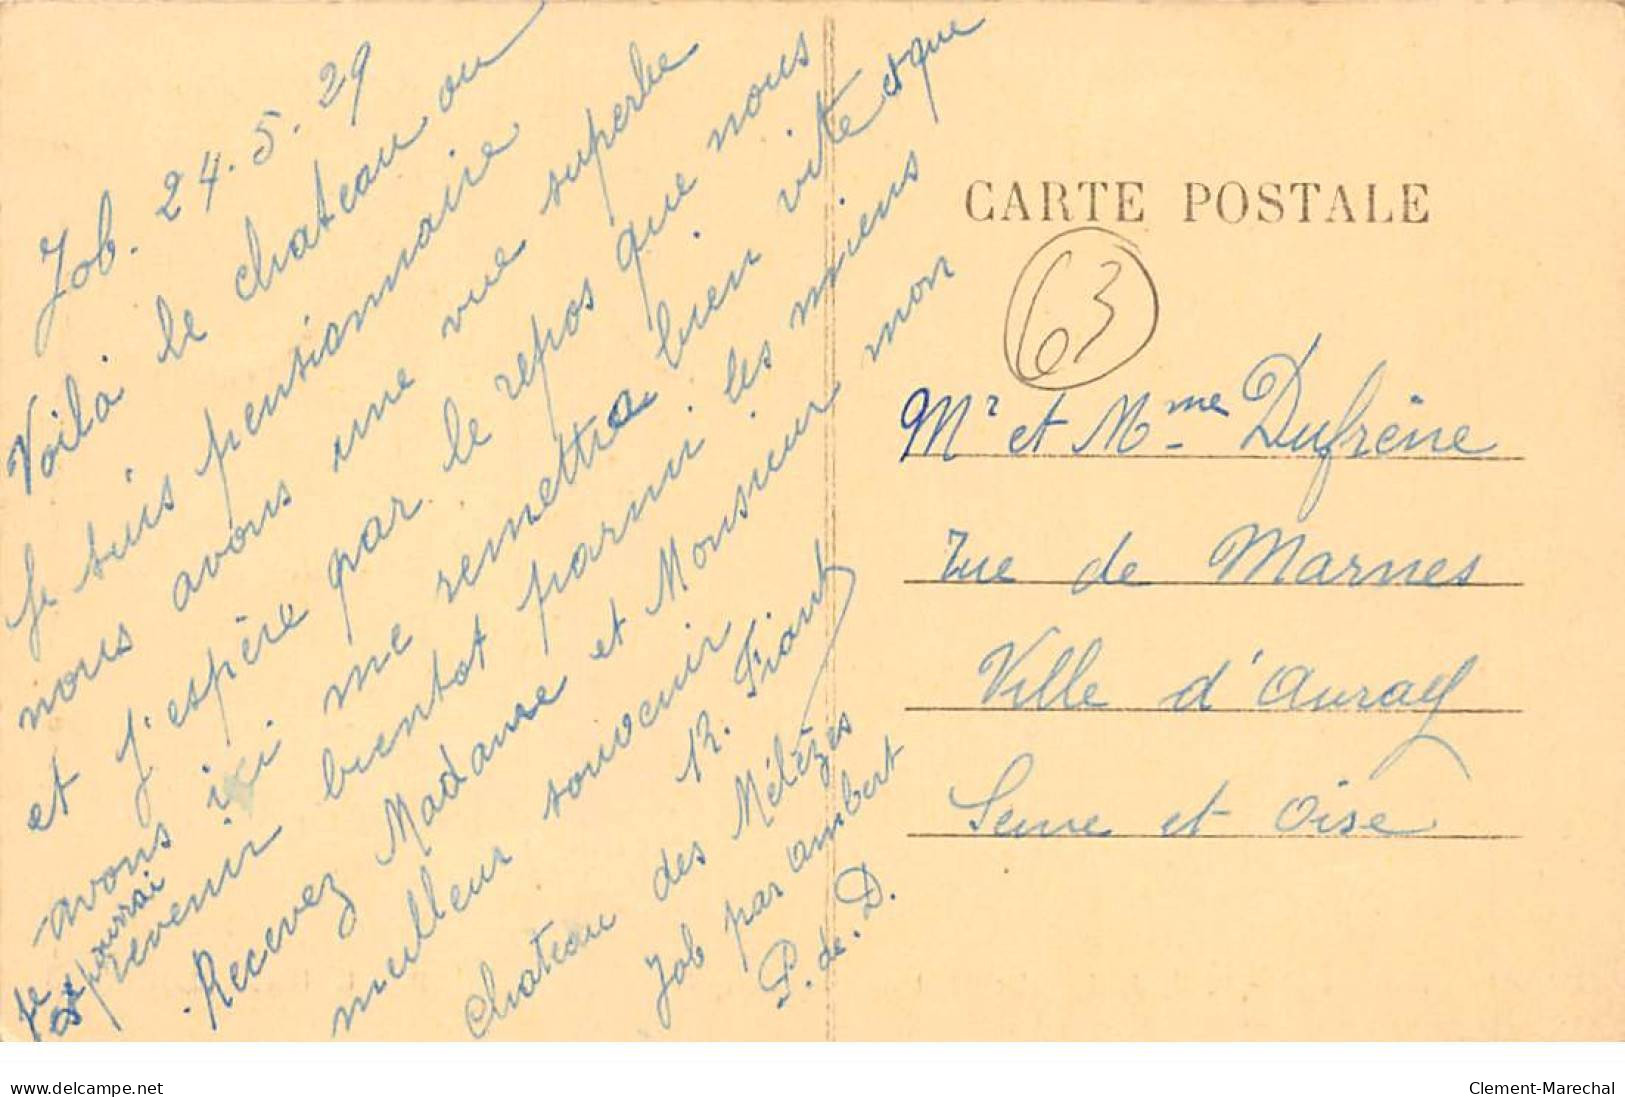 Job. 24.5.29
Voilà le chateau ou
Je suis pensionnaire
nous avons une vue superbe
et j'espère par le repos que nous
avons ici me remettra bien vite et que
je pourrai
revenir bientot parmi les miens
Recevez Madame et Monsieur mon
meilleur souvenir
R. Fiant
chateau des Mélèzes
Job par ambert
P. de. D.
CARTE POSTALE
63
Mr et Mme Dufrêne
rue de Marnes
Ville d'avray
Seine et Oise
www.delcampe.net
Clement-Marechal